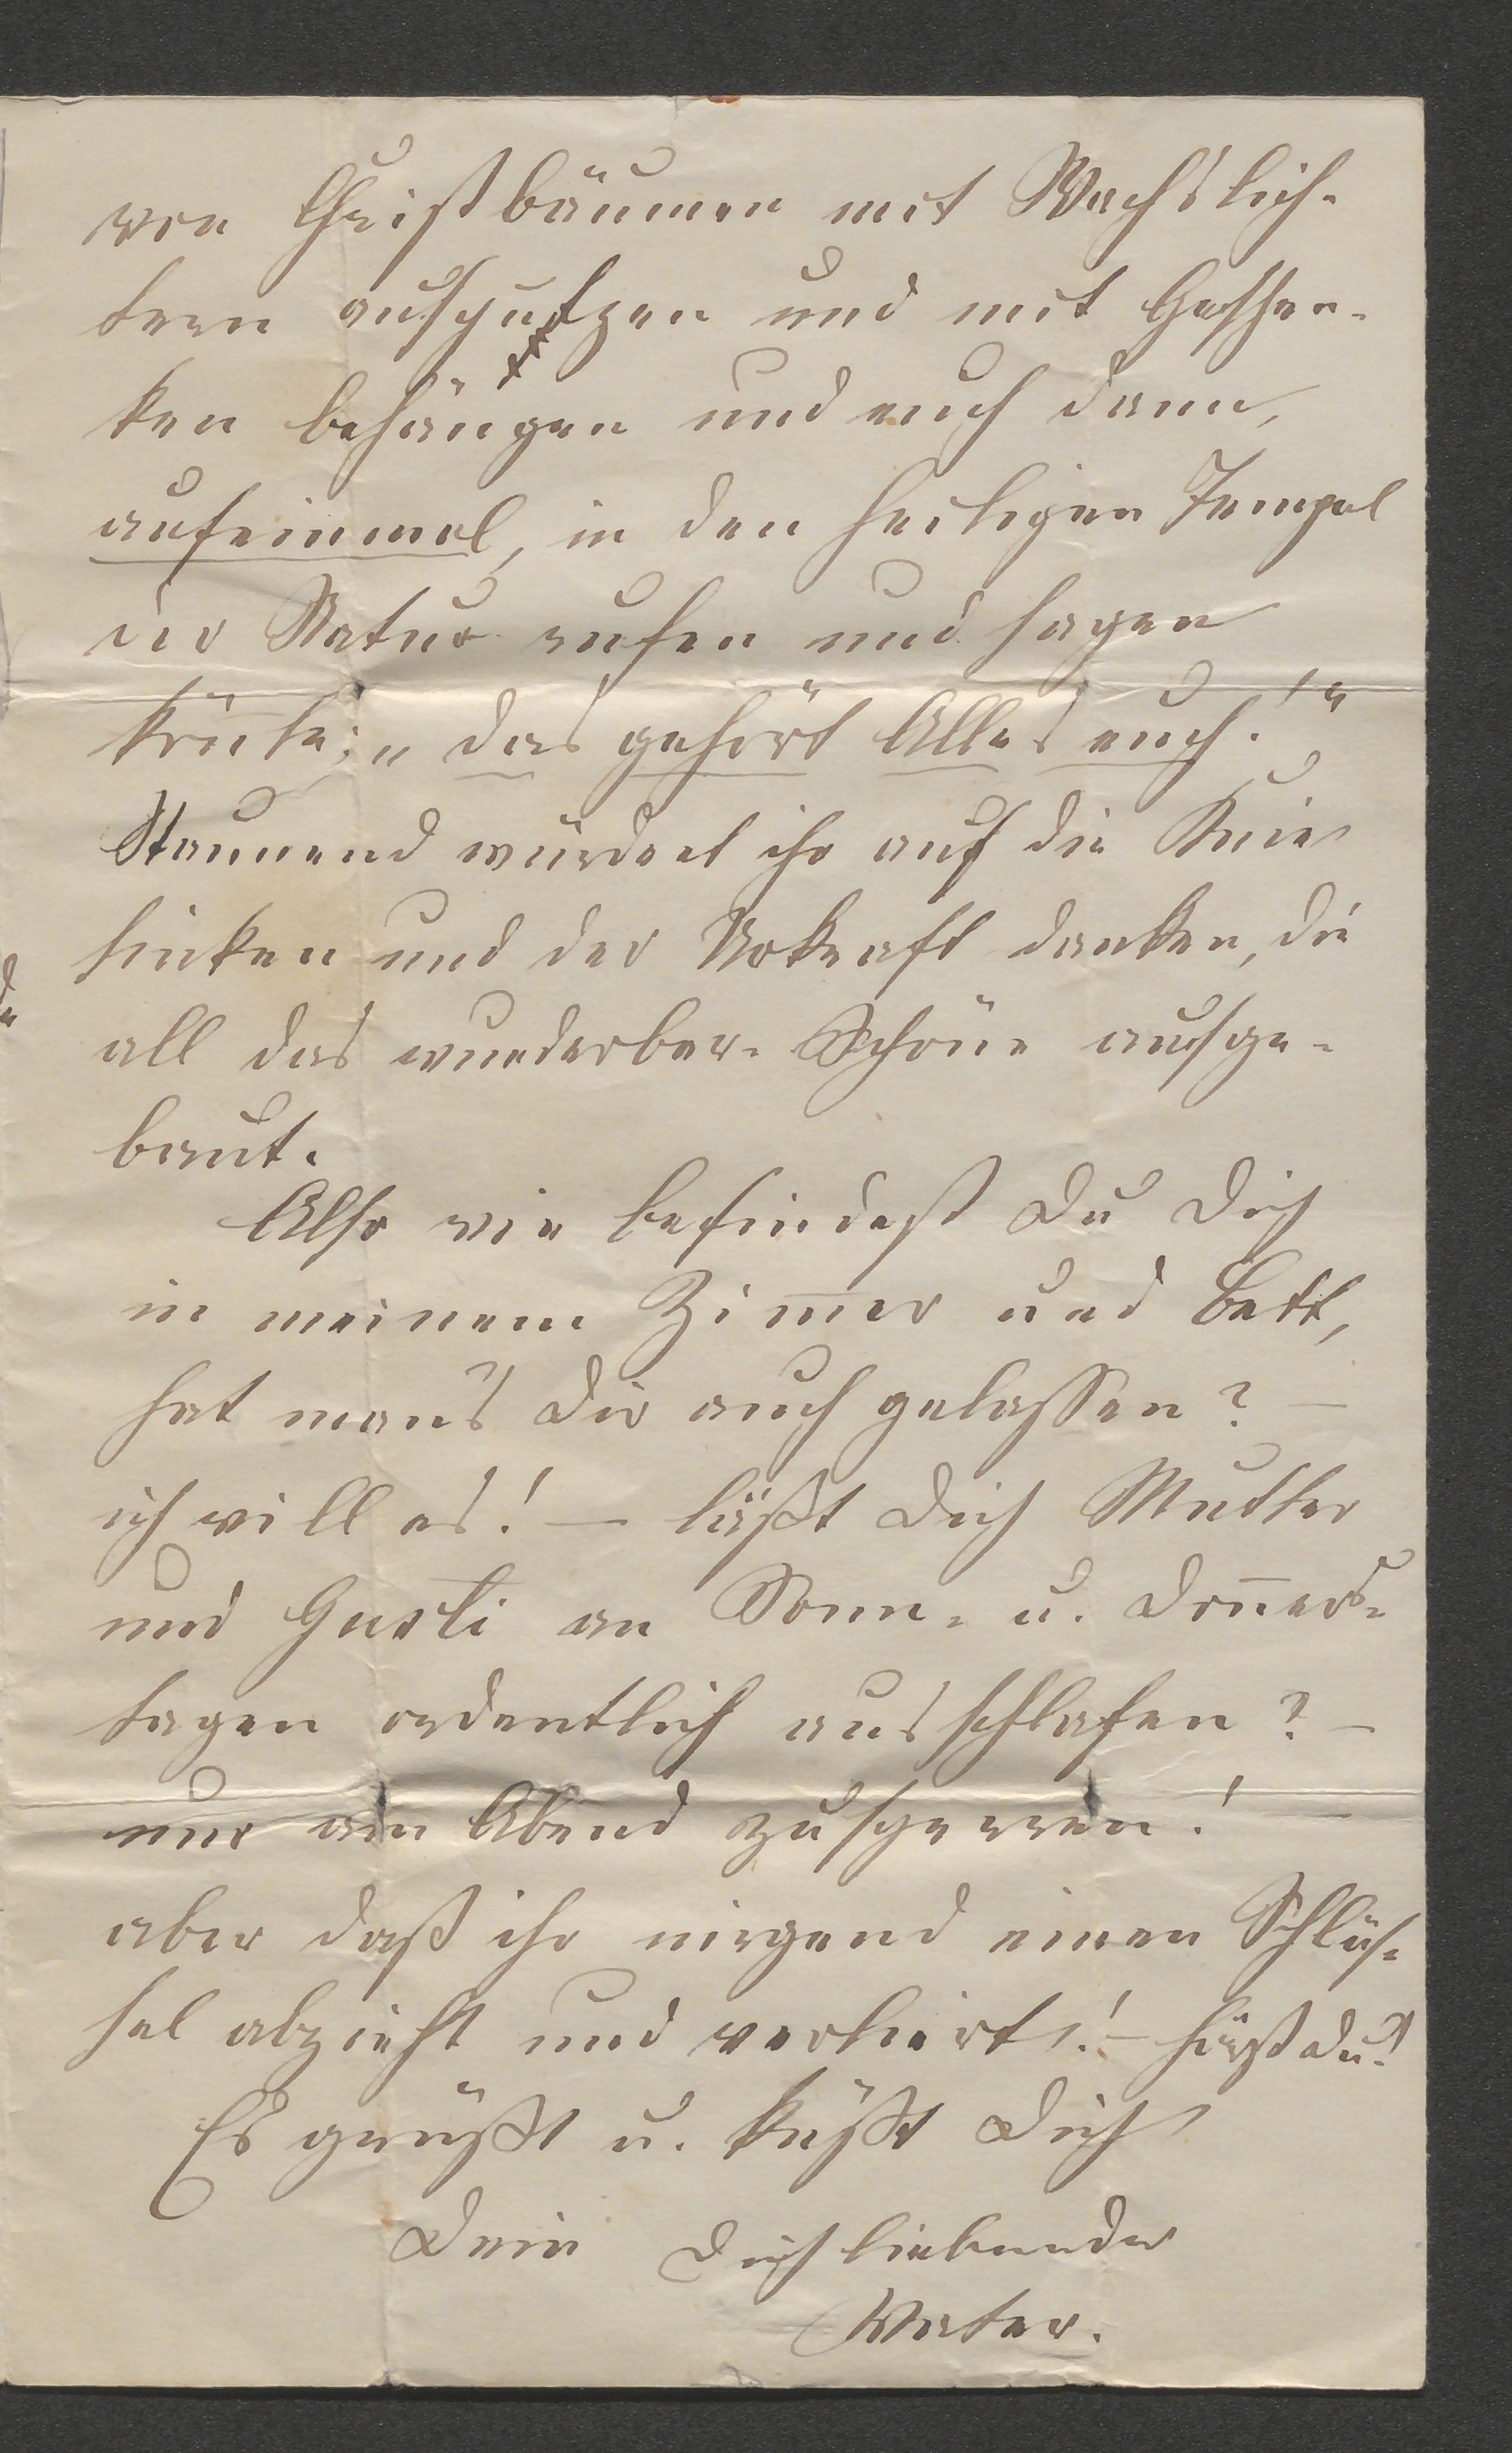 von Christbäumen mit Wachslich-
tern aufputzen und mit Geschen-
ken behängen und euch dann,
aufeinmal, in den heiligen Tempel
der Natur rufen und sagen
könnte: „das gehört Alles euch!“
Staunend würdet ihr auf die Knie
sinken und der Urkraft danken, die
all das wunderbar-Schöne aufge-
baut.
Also wie befindest Du Dich
in meinem Zim̅er und Bett,
hat man's Dir auch gelassen? –
ich will es! – läßt Dich Mutter
und Gusti an Sonn- u. Don̅ers-
tagen ordentlich ausschlafen? –
nur am Abend zusperren! –
aber daß ihr nirgend einen Schlüs-
sel abzieht und verliert! – hörst Du!
Es grüßt u. küßt Dich
Dein Dich liebender
Vater.